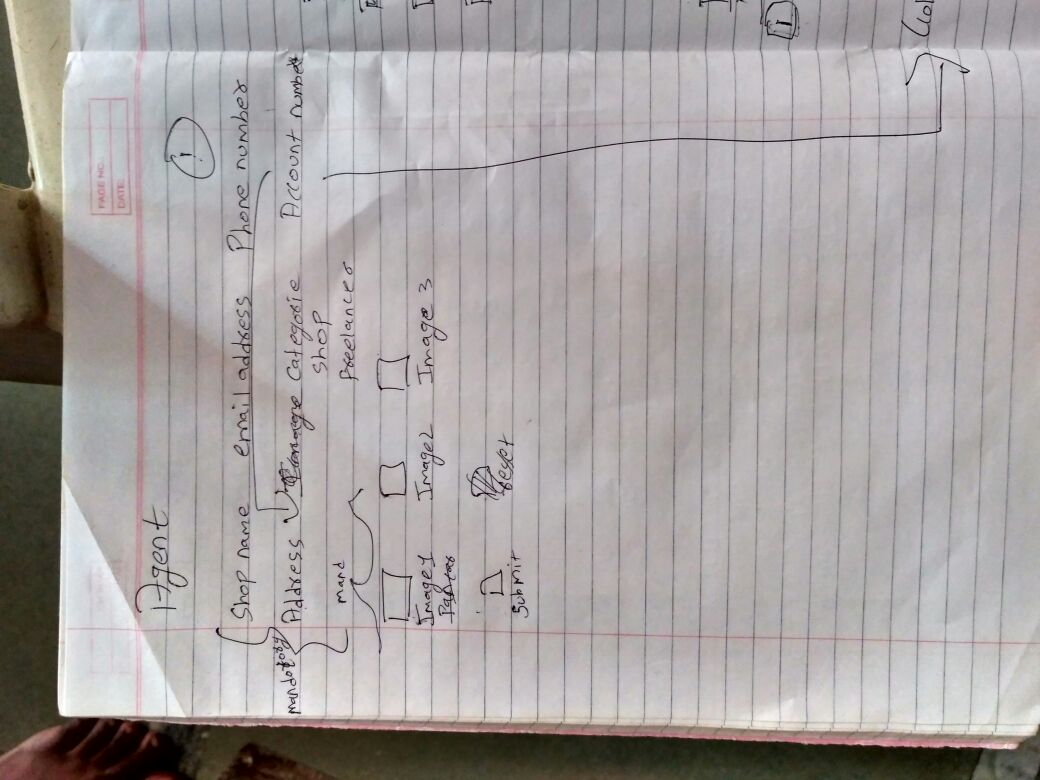 PAGE NO.
DATE:
Agent
!
Shop name email address Phone number
mandotory
Address Categorie Account number
shop
freelancer
mand
Image1 Image2 Image 3
Submit reset